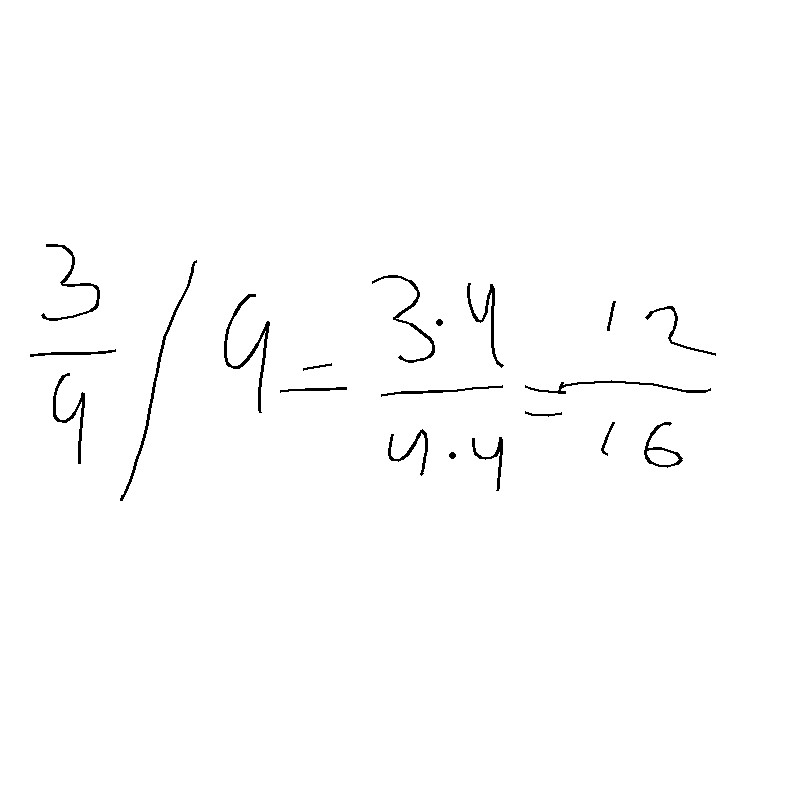 3/4 / 4 = 3·4/4·4 = 12/16